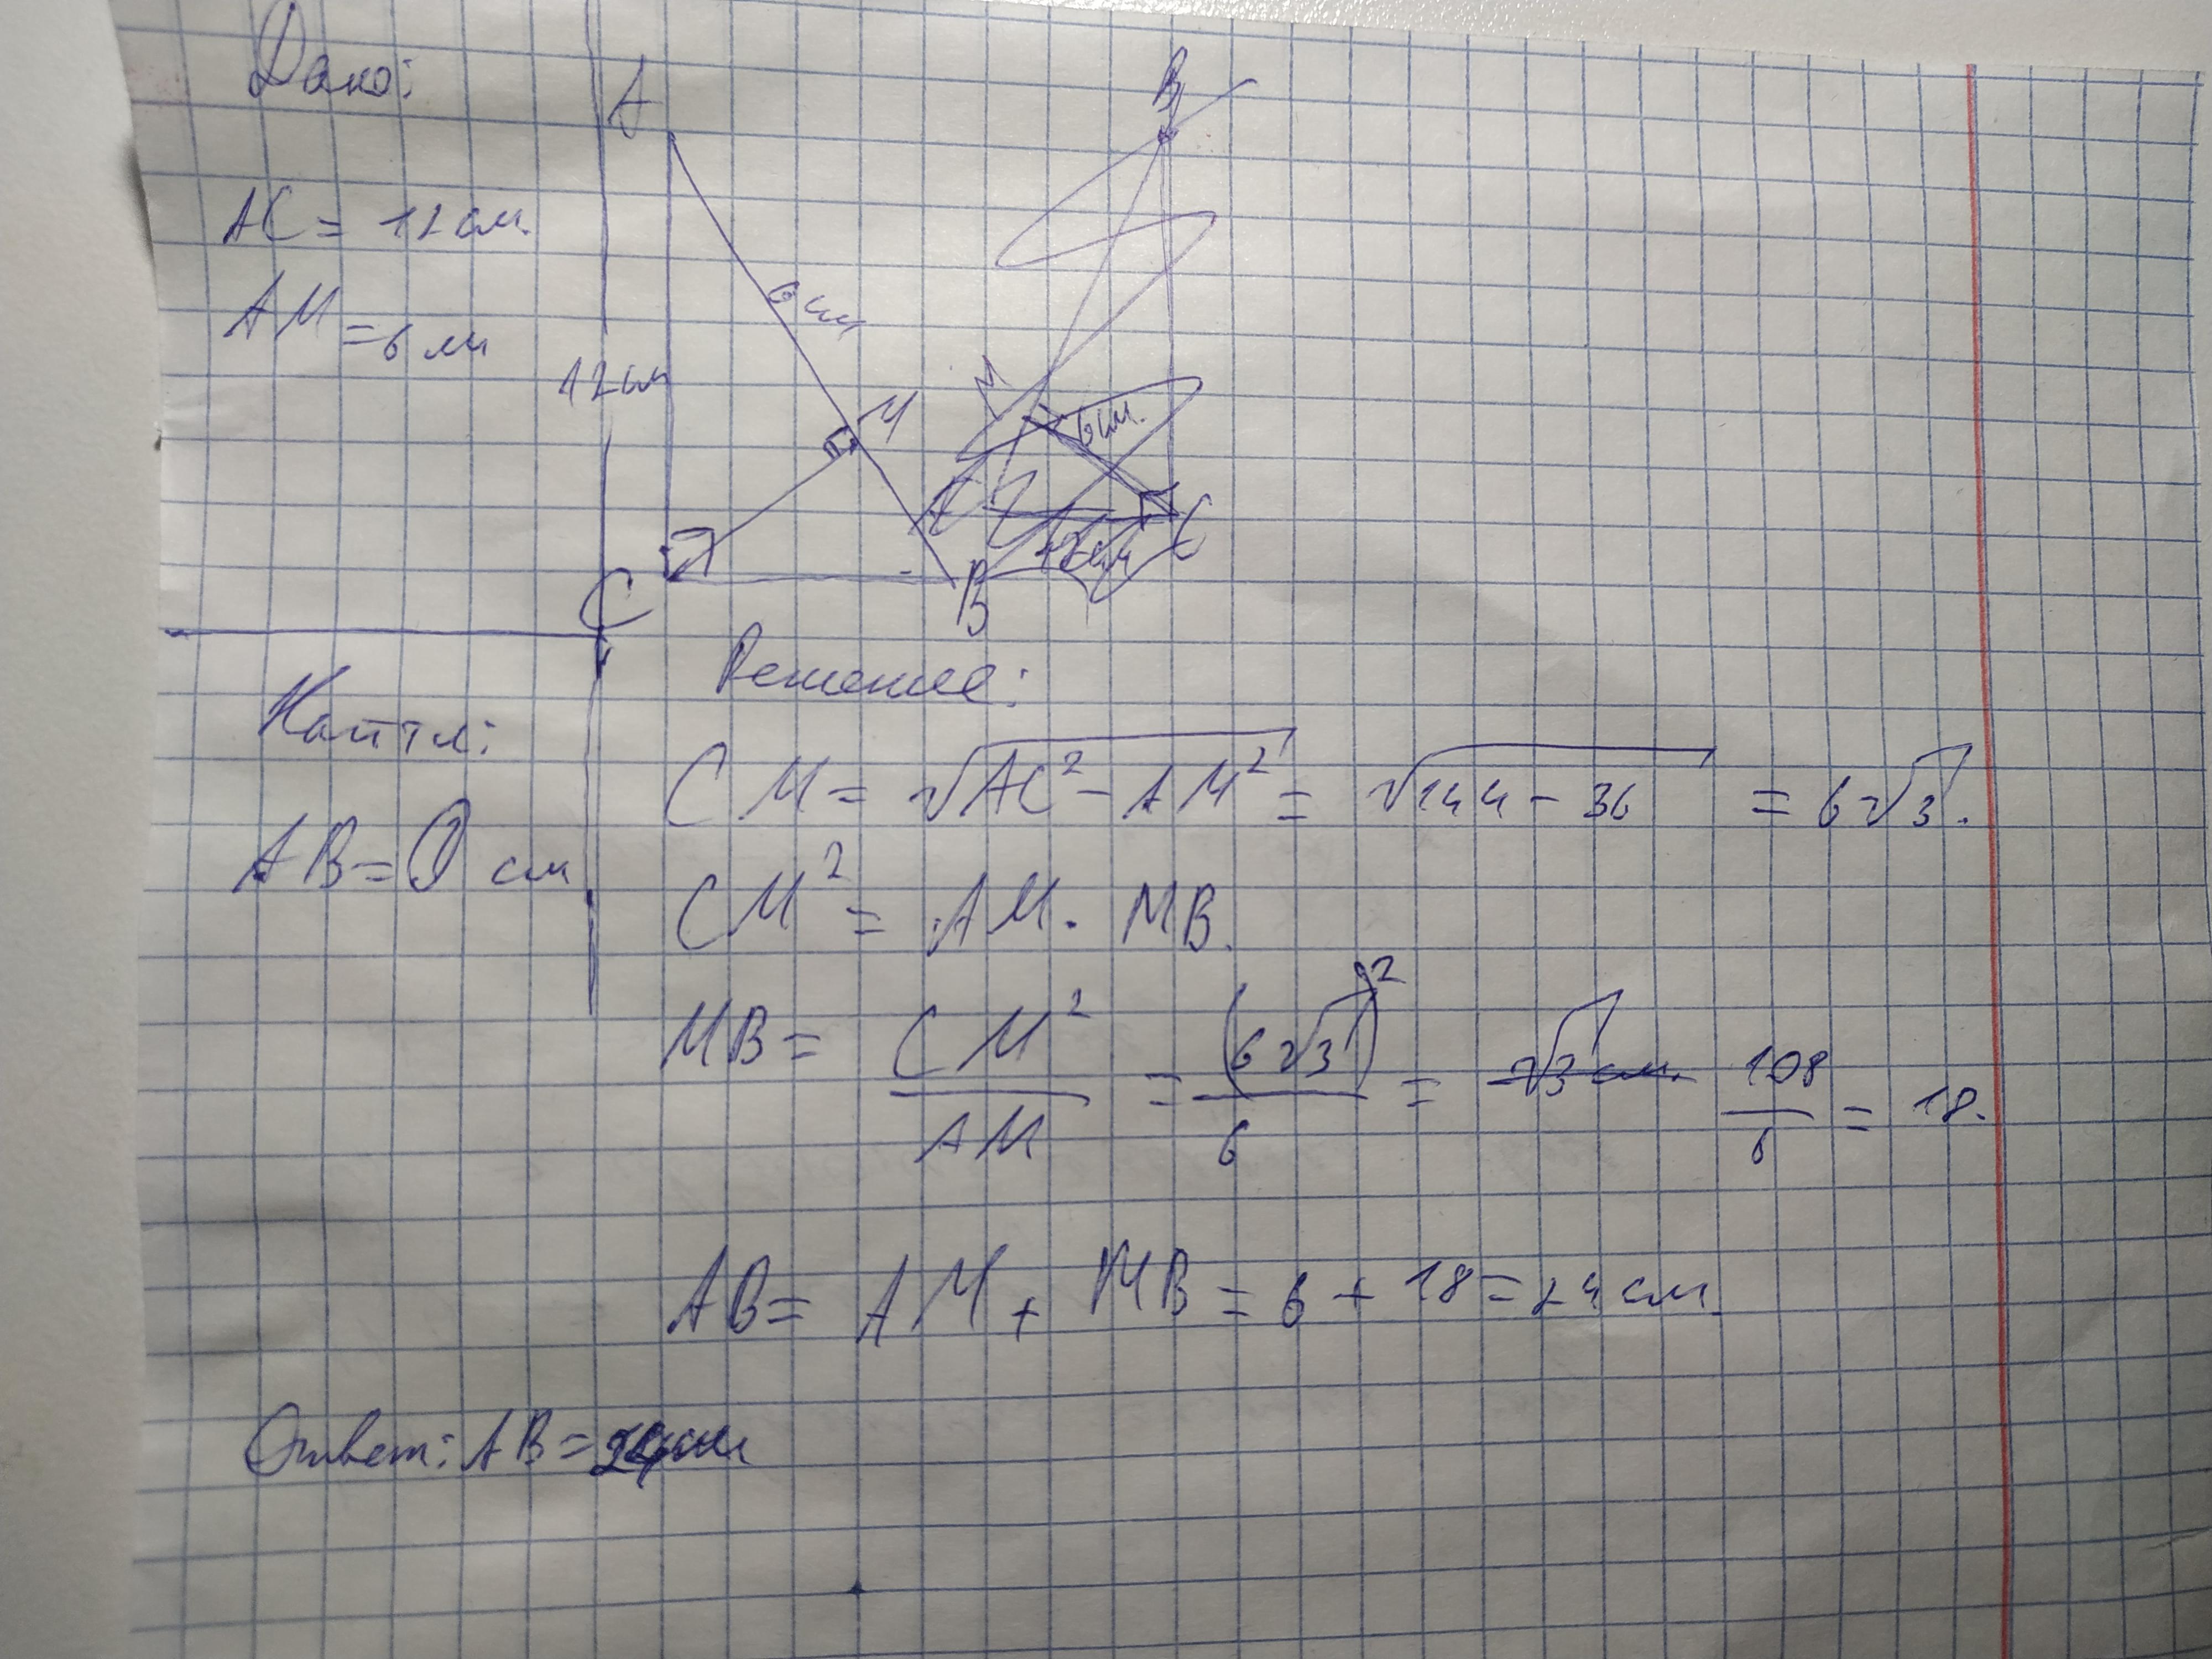 Дано:
AC = 12 см.
AM = 6 см
A
6 см
12 см
M
C
B
B
M
6 см.
12 см
C
Найти:
AB = ? см
Решение:
CM = √AC² - AM² = √144 - 36 = 6√3.
CM² = AM · MB.
MB = CM² / AM = (6√3)² / 6 = √3 см. 108 / 6 = 18.
AB = AM + MB = 6 + 18 = 24 см
Ответ: AB = 24 см